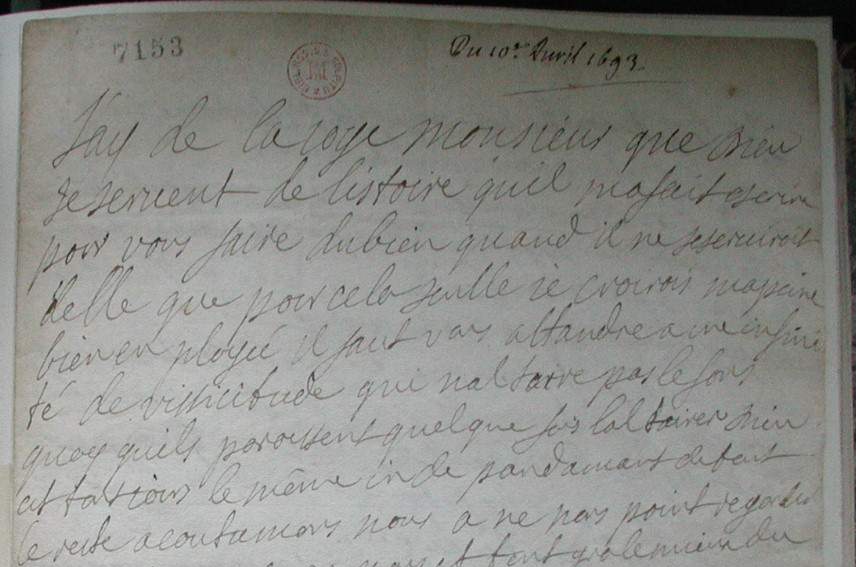 7153
Du 10e Avril 1693
Jay de la joye monsieur que Dieu
se servent de listoire quil ma fait escrire
pour vous faire du bien quand il ne se serviroit
delle que pour cela seulle ie croirois ma paine
bien en ployée il faut vous attandre a une infini
té de vissicitude qui naltaire pas le fons
quoy quils paroissent quelque fois laltairer Dieu
est tousiours le même indepandamant de tout
le reste acoutumons nous a ne nous point regarder